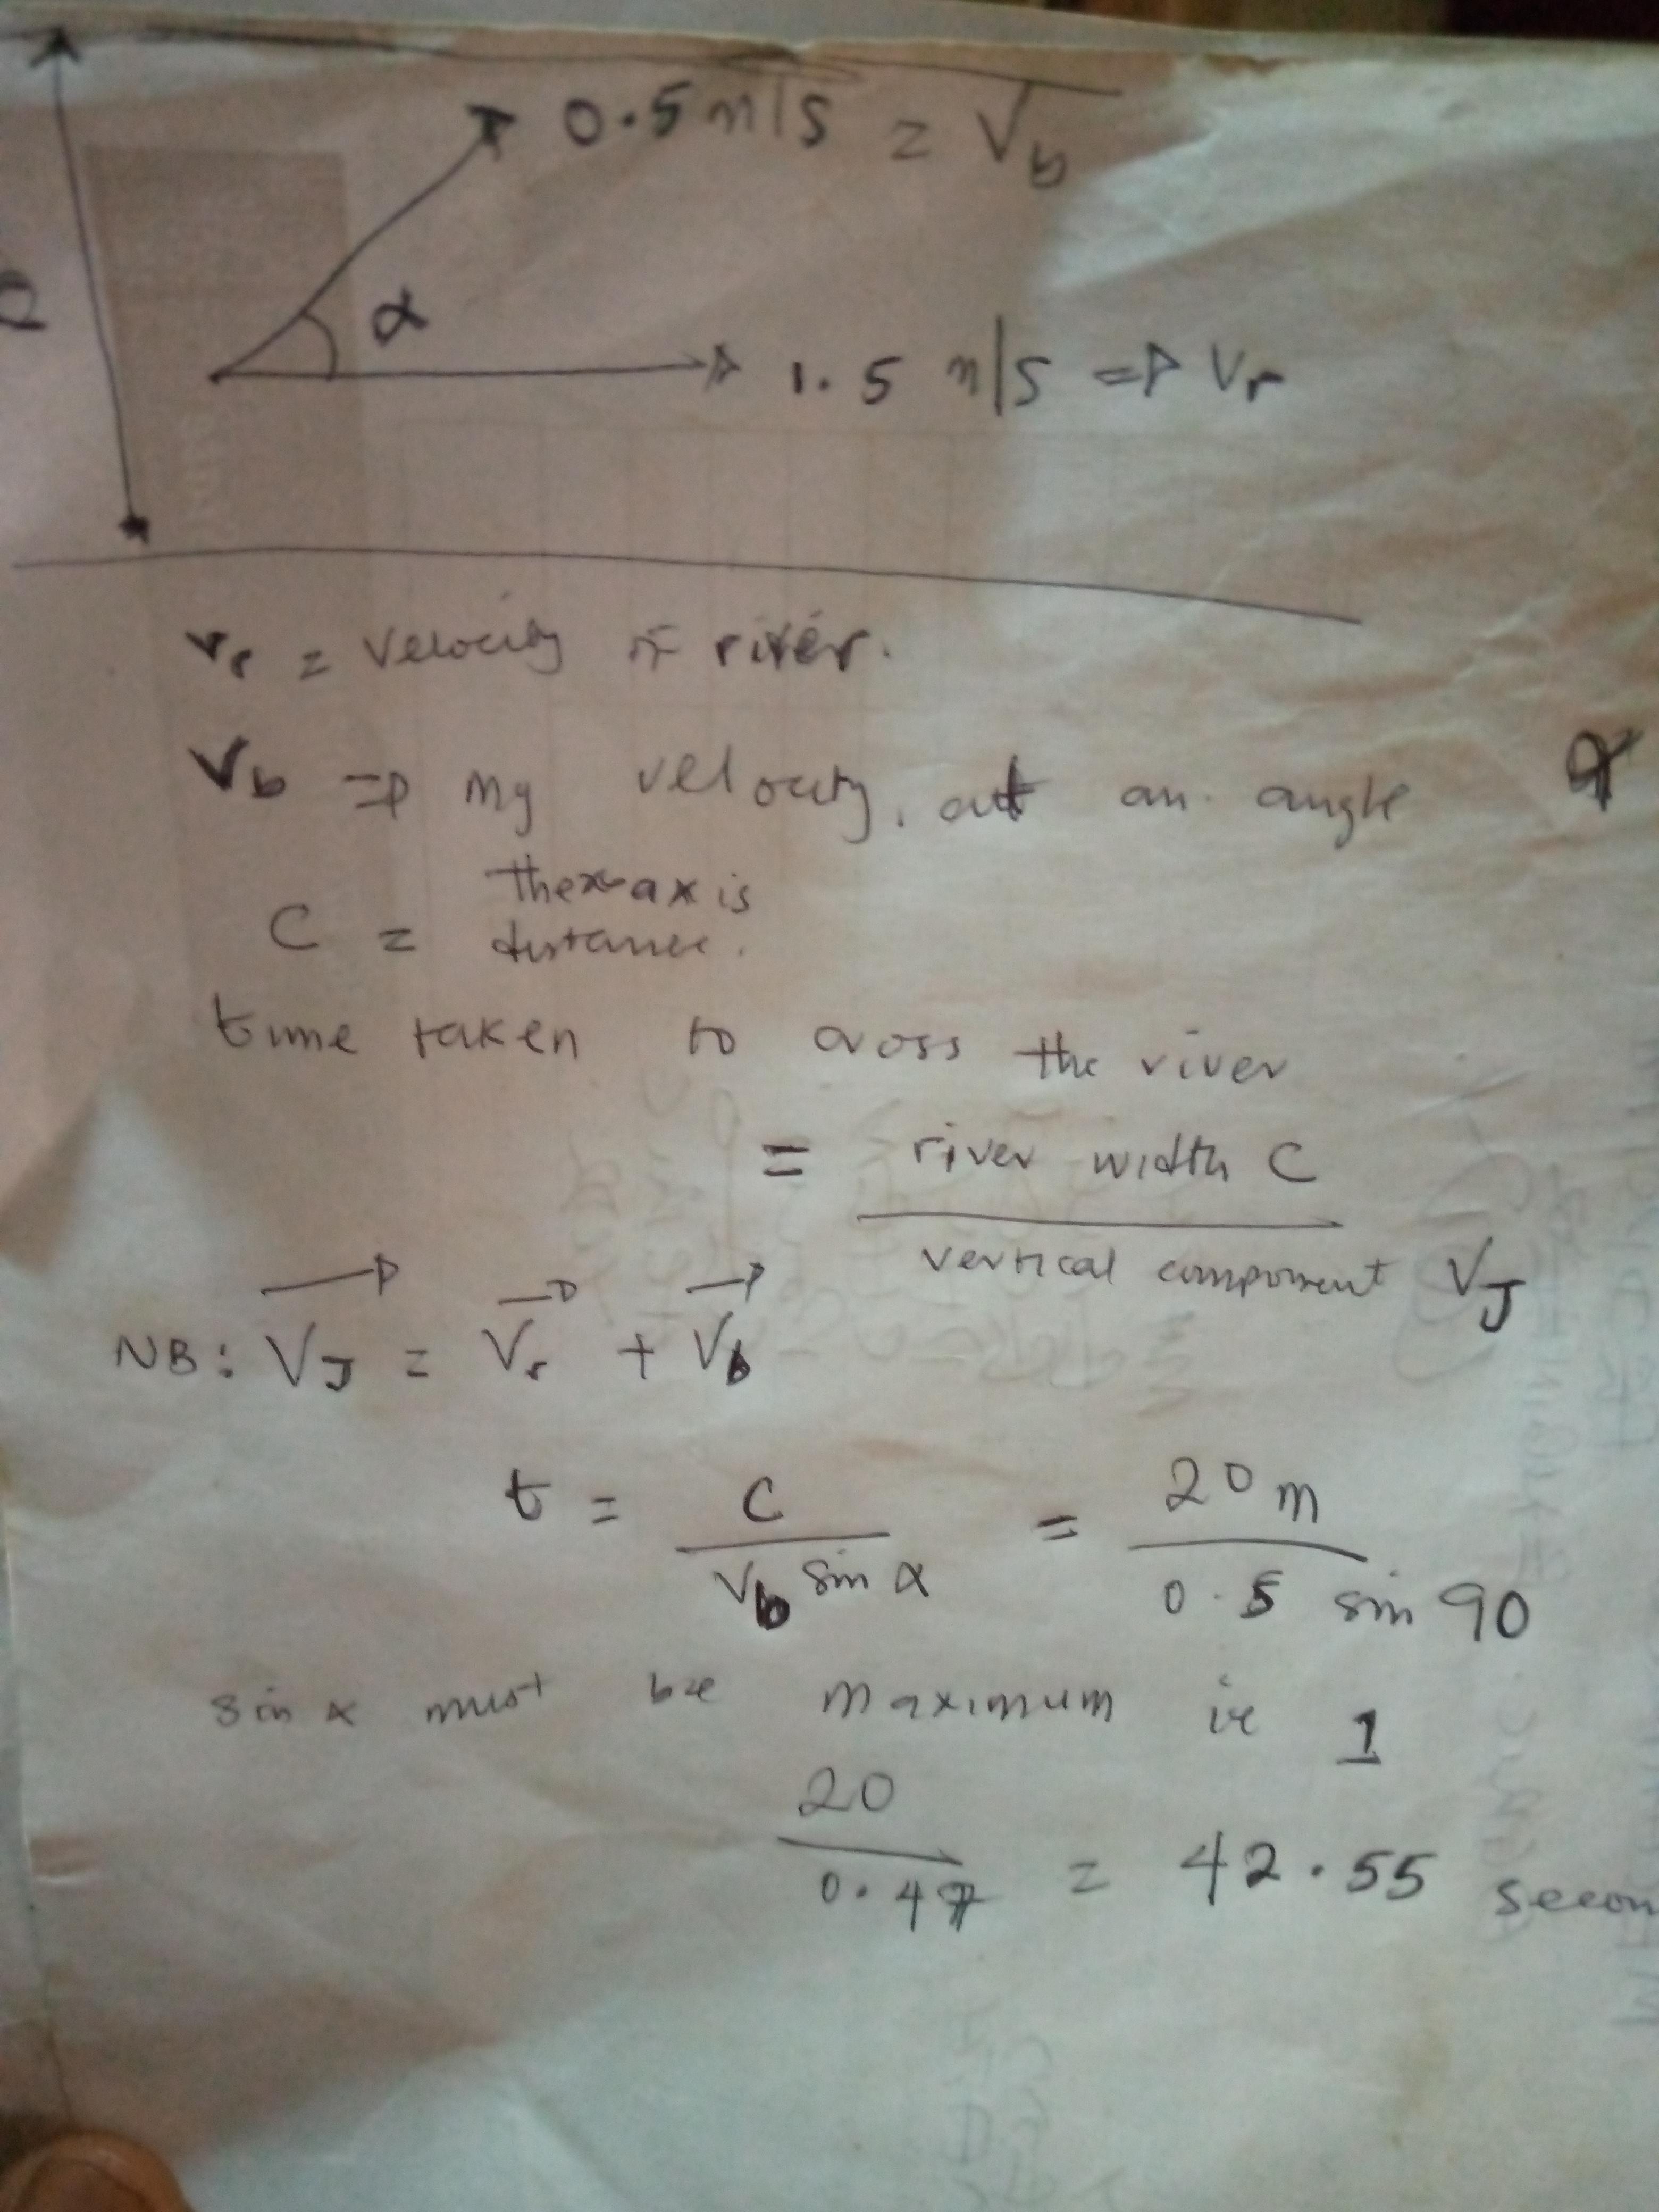 0.5 m/s = Vb
α
C
1.5 m/s => Vr
Vr = velocity of river.
Vb => my velocity, at an angle α
the x-axis
C = distance.
time taken to cross the river
= river width C
vertical component VJ
NB: VJ = Vr + Vb
t = C = 20 m
Vb sin α 0.5 sin 90
sin α must be maximum ie 1
20
0.47 = 42.55 secon